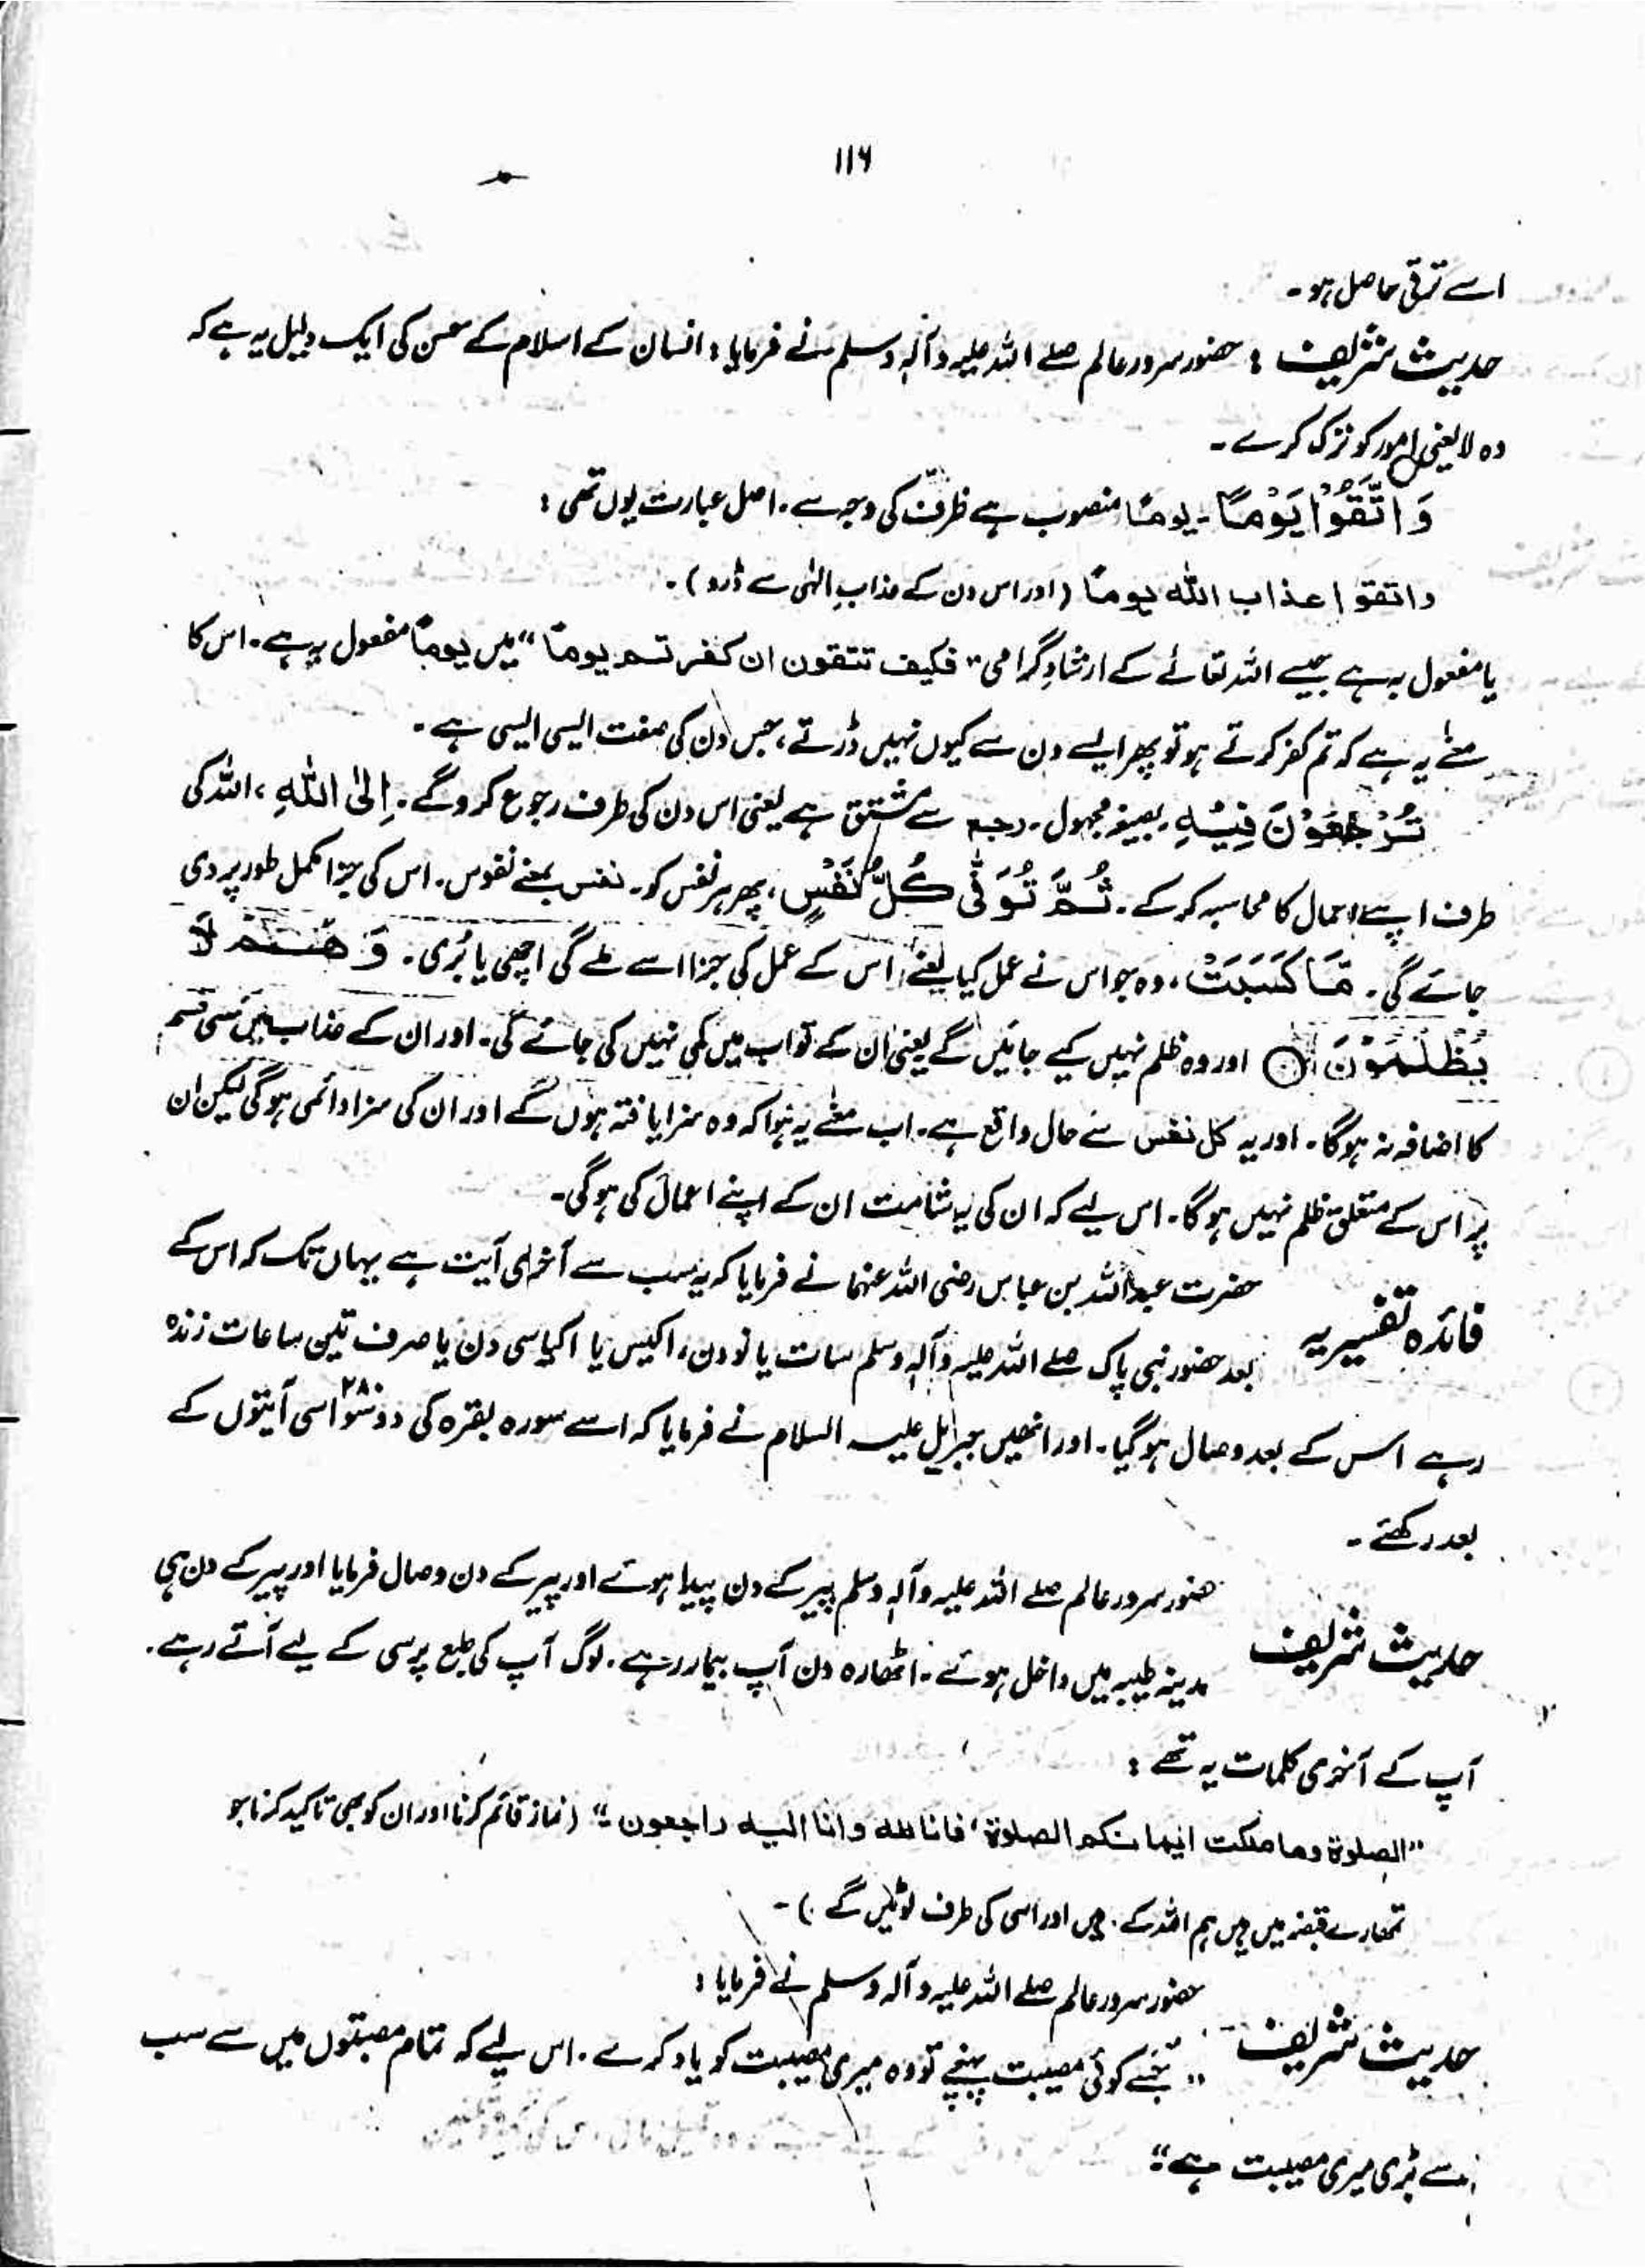 ۱۱۶
اسے ترقی حاصل ہو۔
حدیث شریف : حضور سرور عالم صلے اللہ علیہ وآلہٖ وسلم نے فرمایا : انسان کے اسلام کے حسن کی ایک دلیل یہ ہے کہ
وہ لایعنی امور کو ترک کرے ۔
وَاتَّقُوْا یَوْمًا ۔ یومًا منصوب ہے ظرف کی وجہ سے ۔ اصل عبارت یوں تھی :
واتقوا عذاب اللہ یومًا (اور اس دن کے عذابِ الٰہی سے ڈرو) ۔
یا مفعول بہ ہے جیسے اللہ تعالےٰ کے ارشادِ گرامی " فکیف تتقون ان کفرتم یومًا " میں یومًا مفعول بہ ہے ۔ اس کا
معنےٰ یہ ہے کہ تم کفر کرتے ہو تو پھر ایسے دن سے کیوں نہیں ڈرتے ، جس دن کی صفت ایسی ایسی ہے ۔
تُرْجَعُوْنَ فِیْهِ ۔ بصیغہ مجہول ۔ رجع سے مشتق ہے یعنی اس دن کی طرف رجوع کرو گے ۔ اِلَی اللّٰهِ ، اللہ کی
طرف اپنے اعمال کا محاسبہ کر کے ۔ ثُمَّ تُوَفّٰی کُلُّ نَفْسٍ ، پھر ہر نفس کو ۔ نفس بمعنے نفوس ۔ اس کی جزا مکمل طور پر دی
جائے گی ۔ مَّا کَسَبَتْ ، وہ جو اس نے عمل کیا یعنے اس کے عمل کی جزا اسے ملے گی اچھی یا بُری ۔ وَ هُمْ لَا
یُظْلَمُوْنَ ○ اور وہ ظلم نہیں کیے جائیں گے یعنی ان کے ثواب میں کمی نہیں کی جائے گی ۔ اور ان کے عذاب میں کسی قسم
کا اضافہ نہ ہوگا ۔ اور یہ کل نفس سے حال واقع ہے ۔ اب معنےٰ یہ ہوا کہ وہ سزا یافتہ ہوں گے اور ان کی سزا دائمی ہوگی لیکن ان
پر اس کے متعلق ظلم نہیں ہوگا ۔ اس لیے کہ ان کی یہ شامت ان کے اپنے اعمال کی ہوگی ۔
فائدہ تفسیریہ حضرت عبداللہ بن عباس رضی اللہ عنہما نے فرمایا کہ یہ سب سے آخری آیت ہے یہاں تک کہ اس کے
بعد حضور نبی پاک صلے اللہ علیہ وآلہٖ وسلم سات یا نو دن ، اکیس یا اکیاسی دن یا صرف تین ساعات زندہ
رہے اس کے بعد وصال ہو گیا ۔ اور انھیں جبرائیل علیہ السلام نے فرمایا کہ اسے سورہ بقرہ کی دو سو اسی ۲۸۰ آیتوں کے
بعد رکھئے ۔
حدیث شریف حضور سرور عالم صلے اللہ علیہ وآلہٖ وسلم پیر کے دن پیدا ہوئے اور پیر کے دن وصال فرمایا اور پیر کے دن ہی
مدینہ طیبہ میں داخل ہوئے ۔ اٹھارہ دن آپ بیمار رہے ۔ لوگ آپ کی طبع پرسی کے لیے آتے رہے ۔
آپ کے آخری کلمات یہ تھے :
" الصلوۃ وما ملکت ایمانکم الصلوۃ ، فانا للہ وانا الیہ راجعون ۔" (نماز قائم کرنا اور ان کو بھی تاکید کرنا جو
تمھارے قبضہ میں ہیں ہم اللہ کے ہیں اور اسی کی طرف لوٹیں گے ) ۔
حدیث شریف حضور سرور عالم صلے اللہ علیہ وآلہ وسلم نے فرمایا :
" جسے کوئی مصیبت پہنچے تو وہ میری مصیبت کو یاد کرے ۔ اس لیے کہ تمام مصیبتوں میں سے سب
سے بڑی میری مصیبت ہے ۔"